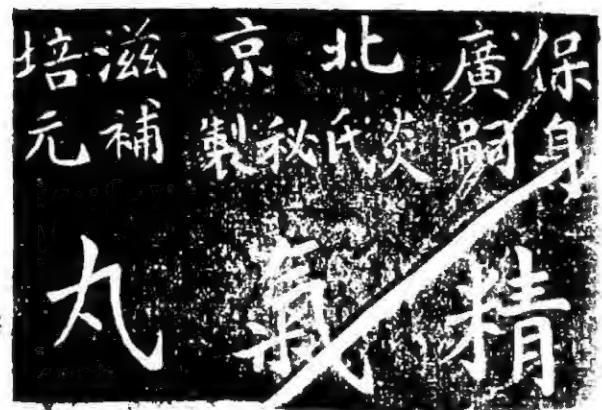 保身
廣嗣
北京
炎氏秘製
滋補
培元
精氣丸